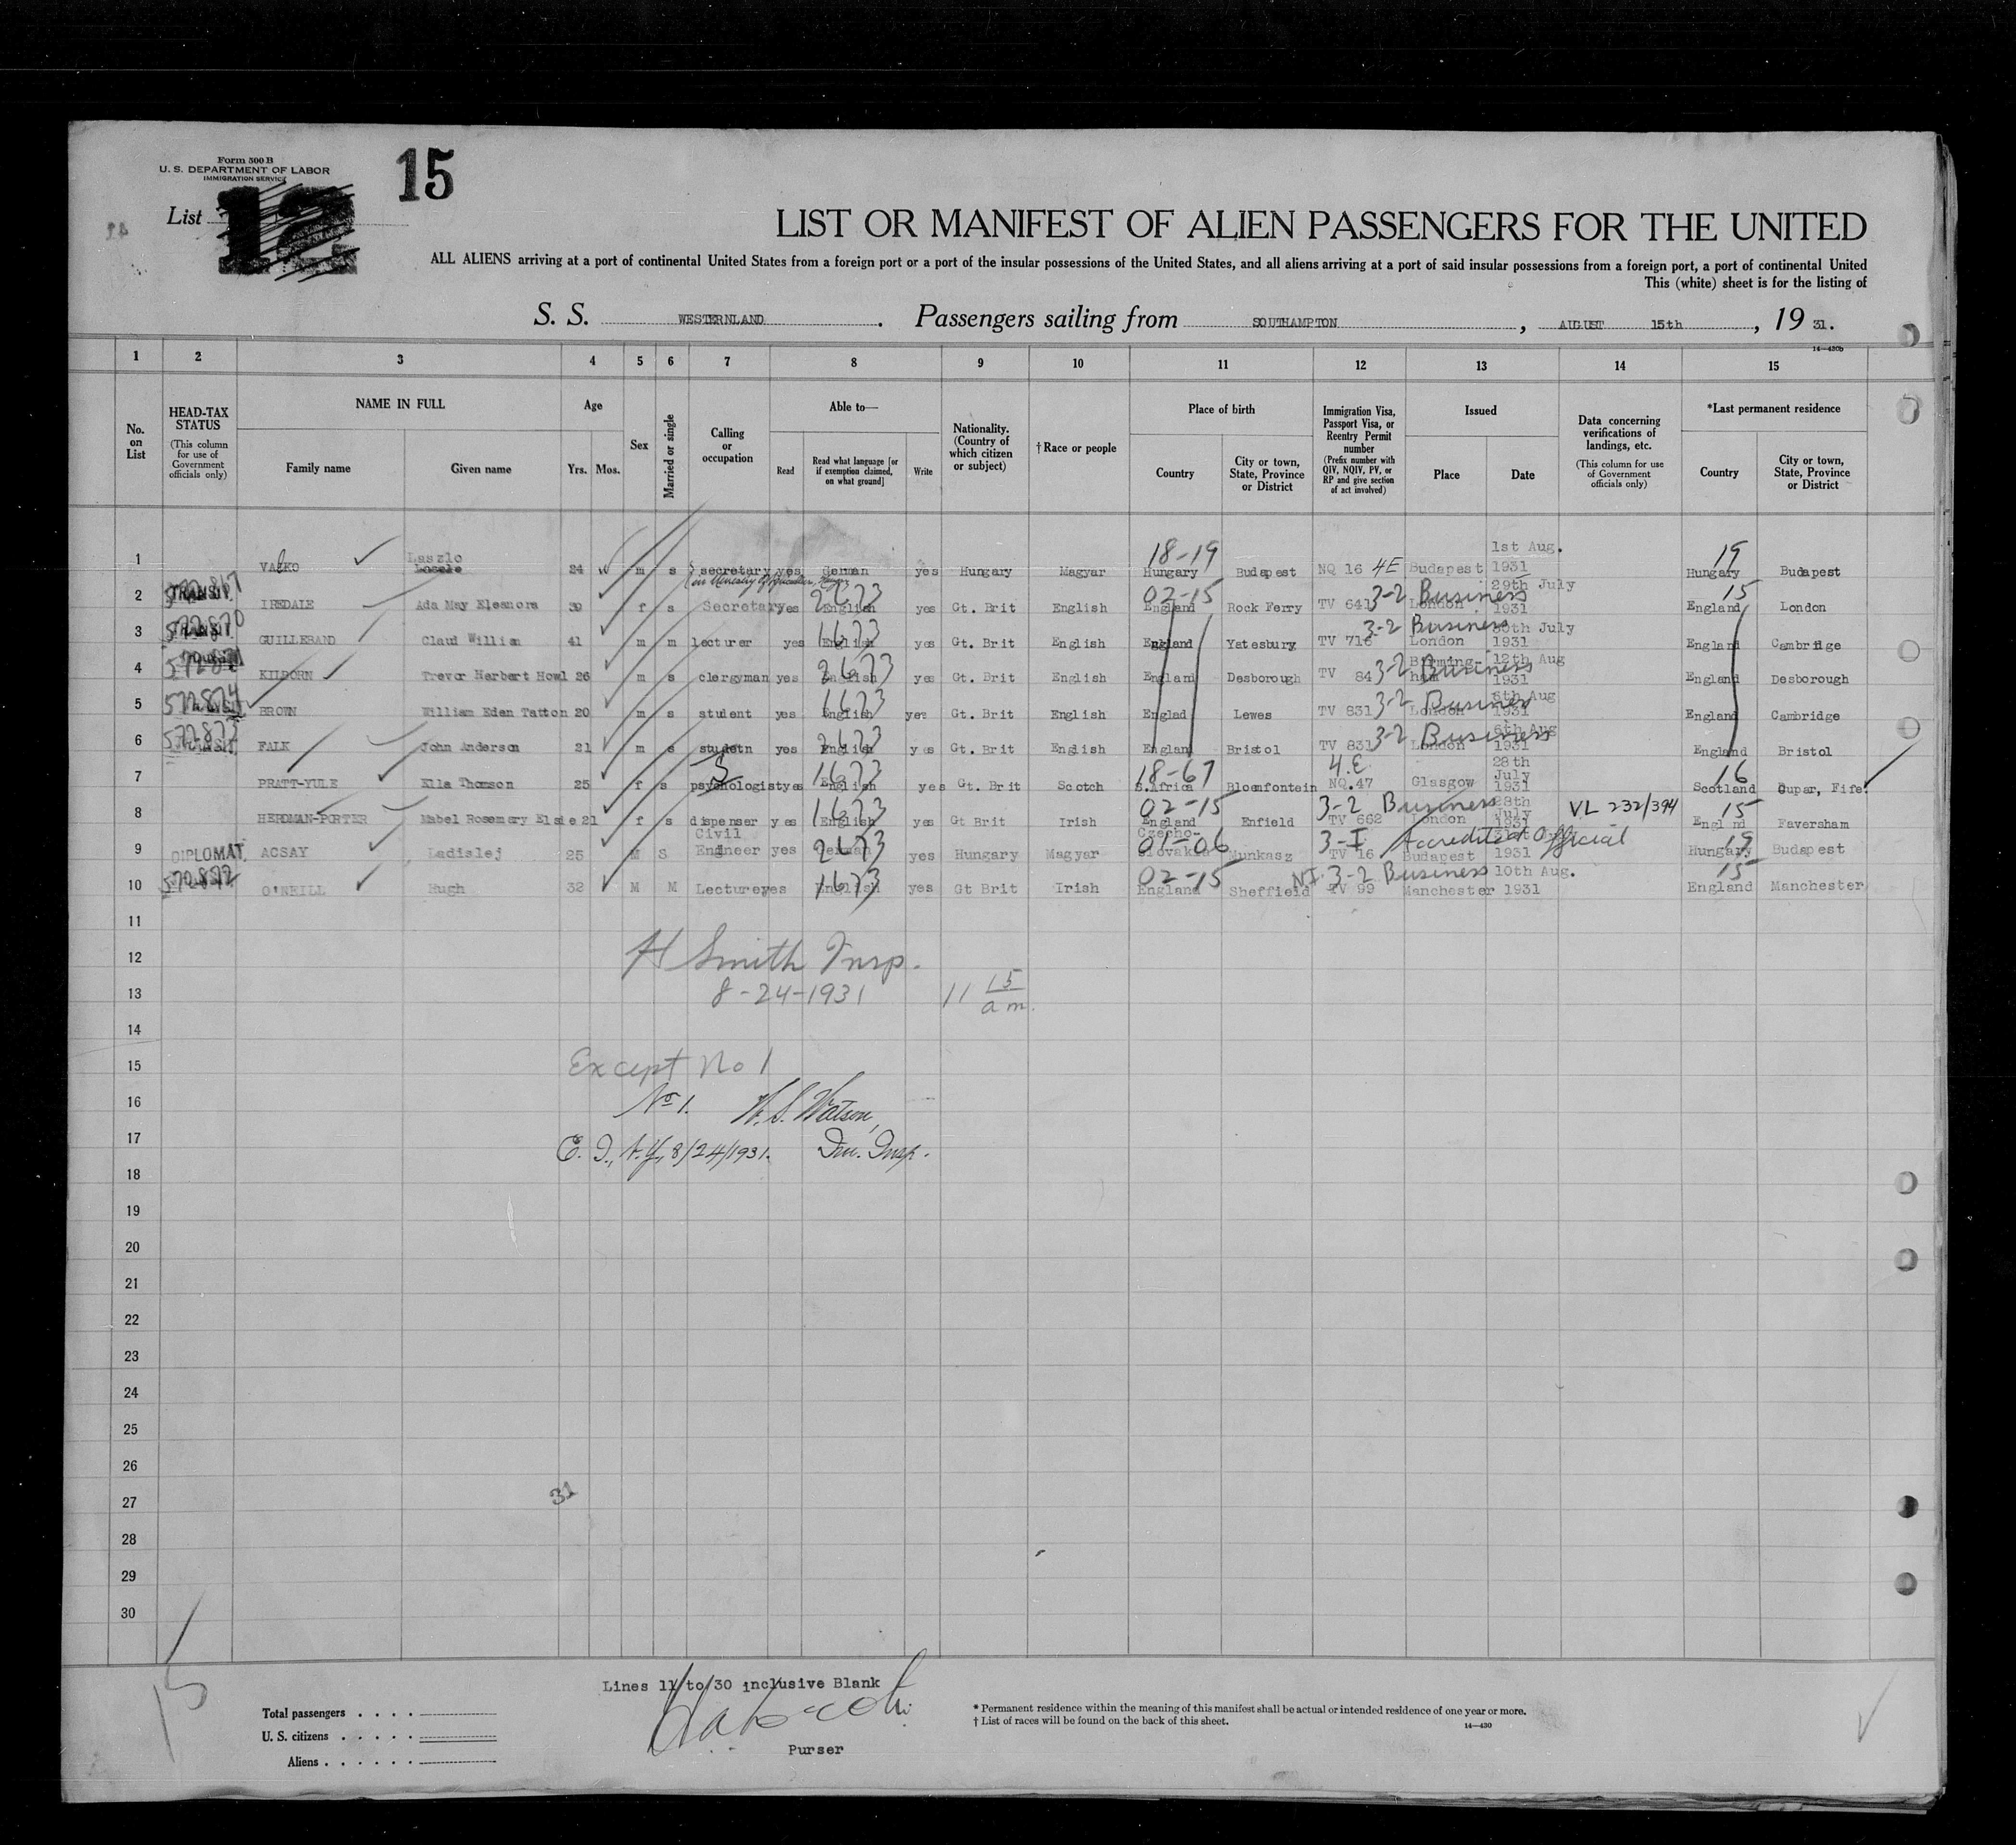 Form 500 B
U. S. DEPARTMENT OF LABOR
IMMIGRATION SERVICE
15
List 12
LIST OR MANIFEST OF ALIEN PASSENGERS FOR THE UNITED
ALL ALIENS arriving at a port of continental United States from a foreign port or a port of the insular possessions of the United States, and all aliens arriving at a port of said insular possessions from a foreign port, a port of continental United
This (white) sheet is for the listing of
S. S. WESTERNLAND. Passengers sailing from SOUTHAMPTON, AUGUST 15th, 19 31.
14—430b
1 2 3 4 5 6 7 8 9 10 11 12 13 14 15
No. on List
HEAD-TAX STATUS (This column for use of Government officials only)
NAME IN FULL Family name Given name
Age Yrs. Mos.
Sex
Married or single
Calling or occupation
Able to— Read Read what language [or if exemption claimed, on what ground] Write
Nationality. (Country of which citizen or subject)
†Race or people
Place of birth Country City or town, State, Province or District
Immigration Visa, Passport Visa, or Reentry Permit number (Prefix number with QIV, NQIV, PV, or RP and give section of act involved)
Issued Place Date
Data concerning verifications of landings, etc. (This column for use of Government officials only)
*Last permanent residence Country City or town, State, Province or District
1 VASKO Laszlo 24 m s secretary yes German yes Hungary Magyar 18-19 Hungary Budapest NQ 16 4E Budapest 1st Aug. 1931 19 Hungary Budapest
2 TRANSIT IREDALE Ada May Eleanora 39 f s Secretary yes 2673 English yes Gt. Brit English 02-15 England Rock Ferry TV 641 3-2 Business London 29th July 1931 15 England London
3 572870 TRANSIT GUILLEBAND Claud William 41 m m lecturer yes 1673 English yes Gt. Brit English England Yatesbury TV 716 3-2 Business London 30th July 1931 England Cambridge
4 KILBORN Trevor Herbert Howl 26 m s clergyman yes 2673 English yes Gt. Brit English England Desborough TV 84 3-2 Business Birming-ham 12th Aug 1931 England Desborough
5 572874 BROWN William Eden Tatton 20 m s student yes 1673 English yes Gt. Brit English Englad Lewes TV 831 3-2 Business London 6th Aug 1931 England Cambridge
6 572877 TRANSIT FALK John Anderson 21 m s studetn yes 2673 English yes Gt. Brit English Englan Bristol TV 831 3-2 Business London 6th Aug 1931 England Bristol
7 PRATT-YULE Ella Thomson 25 f s psychologist yes 1673 English yes Gt. Brit Scotch 18-67 S.Africa Bloemfontein 4.E NQ.47 Glasgow 28th July 1931 16 Scotland Cupar, Fife
8 HERDMAN-PORTER Mabel Rosemary Elsie 21 f s dispenser yes 1673 English yes Gt Brit Irish 02-15 England Enfield 3-2 Business TV 662 London 28th July 1931 VL 232/394 15 Engl nd Faversham
9 DIPLOMAT. ACSAY Ladislej 25 M S Civil Engineer yes 2673 yes Hungary Magyar 01-06 Czecho-Slovakia Munkasz 3-I Accredited Official TV 16 Budapest 1931 19 Hungary Budapest
10 572872 O'NEILL Hugh 32 M M Lecturer yes 1673 English yes Gt Brit Irish 02-15 England Sheffield NI 3-2 Business TV 99 Manchester 10th Aug. 1931 15 England Manchester
11
12 H Smith Insp.
13 8-24-1931 11 15 a m.
14
15 Except No 1
16 No 1. W. S. Watson,
17 E. I., N.Y., 8/24/1931. Imm. Insp.
18
19
20
21
22
23
24
25
26
27 31
28
29
30
Lines 11 to 30 inclusive Blank
Total passengers
U. S. citizens
Aliens
Purser
* Permanent residence within the meaning of this manifest shall be actual or intended residence of one year or more.
† List of races will be found on the back of this sheet.
14—430